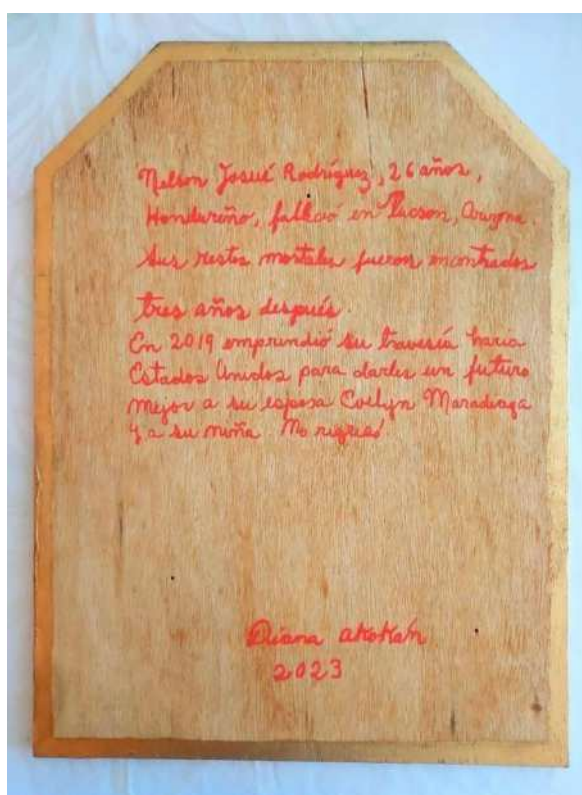 Nelson Josué Rodríguez, 26 años,
Hondureño, falleció en Tucson, Arizona.
Sus restos mortales fueron encontrados
tres años después.
En 2019 emprendió su travesía hacia
Estados Unidos para darles un futuro
mejor a su esposa Evelyn Maradiaga
y a su niña. No regresó
Diana akokán
2023